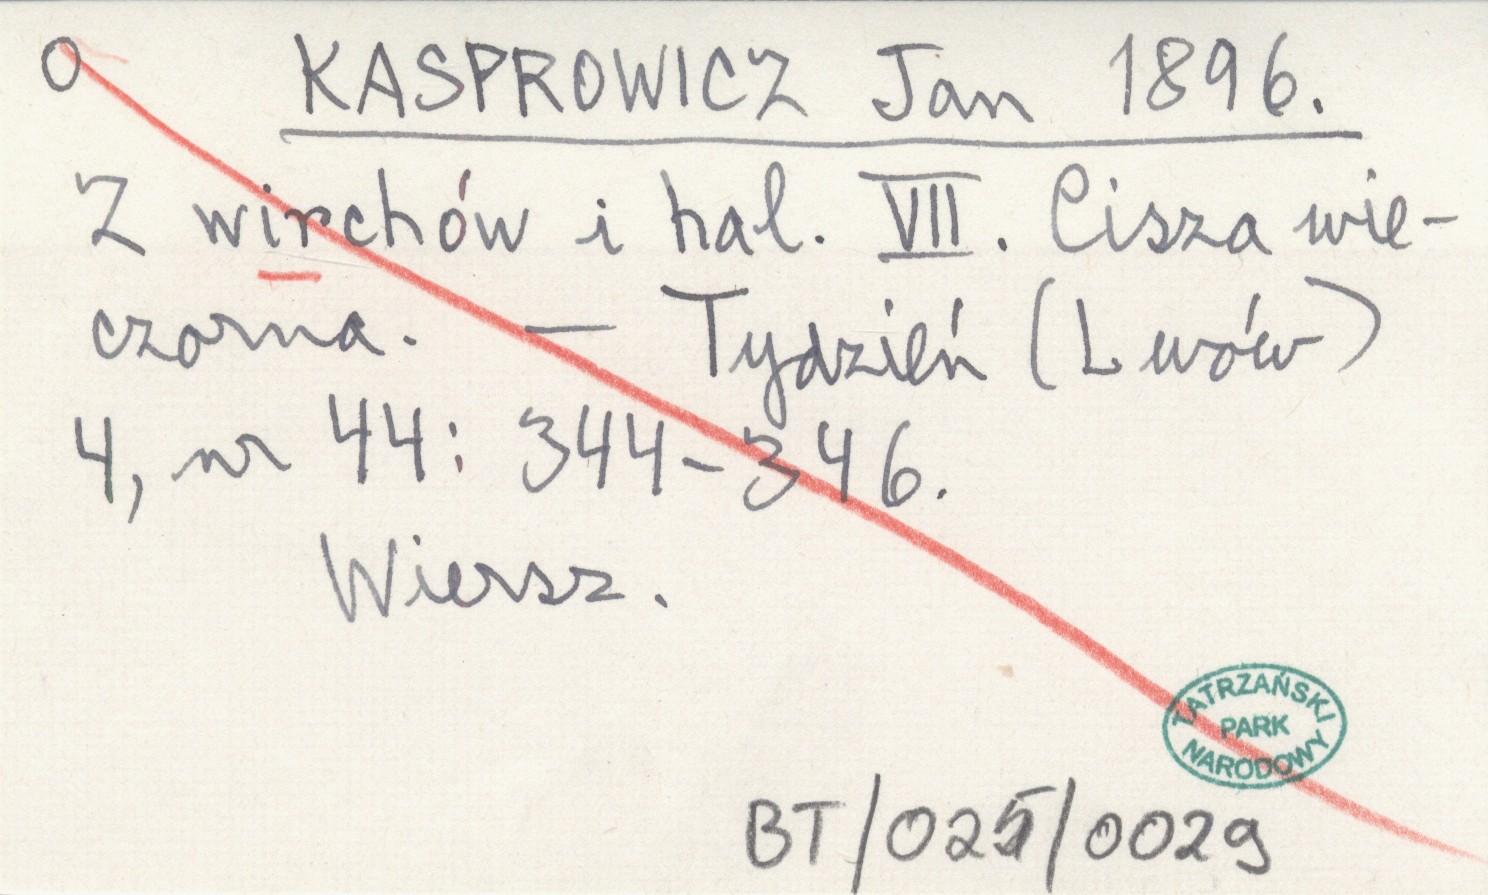 O KASPROWICZ Jan 1896.
Z wirchów i hal. VII. Cisza wie-
czorna. — Tydzień (Lwów)
4, nr 44: 344-346.
Wiersz.
TATRZAŃSKI
PARK
NARODOWY
BT/025/0029